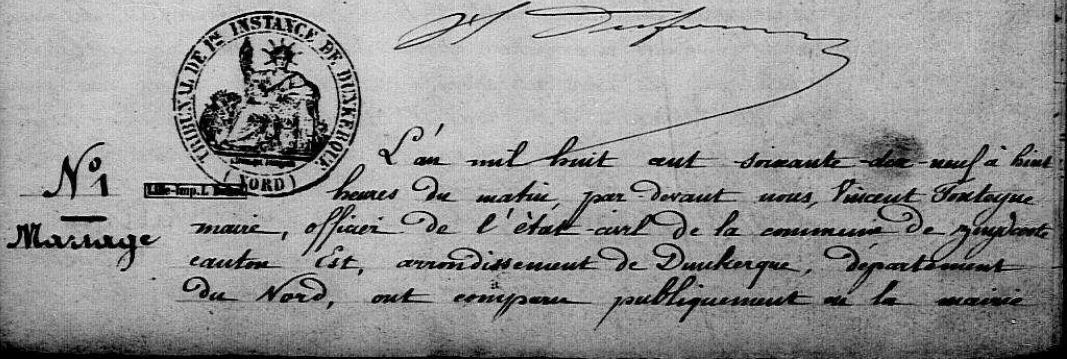 TRIBUNAL DE 1RE INSTANCE DE DUNKERQUE
(NORD)
N° 1
Mariage
L'an mil huit cent soixante dix neuf à huit
heures du matin, par devant nous, Vincent
maire, officier de l'état civil de la commune de Zuydcoote
canton Est, arrondissement de Dunkerque, département
du Nord, ont comparu publiquement en la mairie